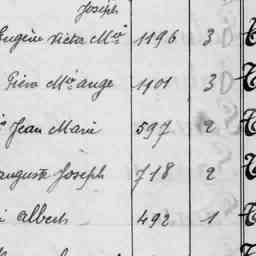 Joseph
Eugène Victor Mie 1196 3
Piere Mie ange 1101 3
Jean Marie 597 2
auguste Joseph 718 2
albert 492 1